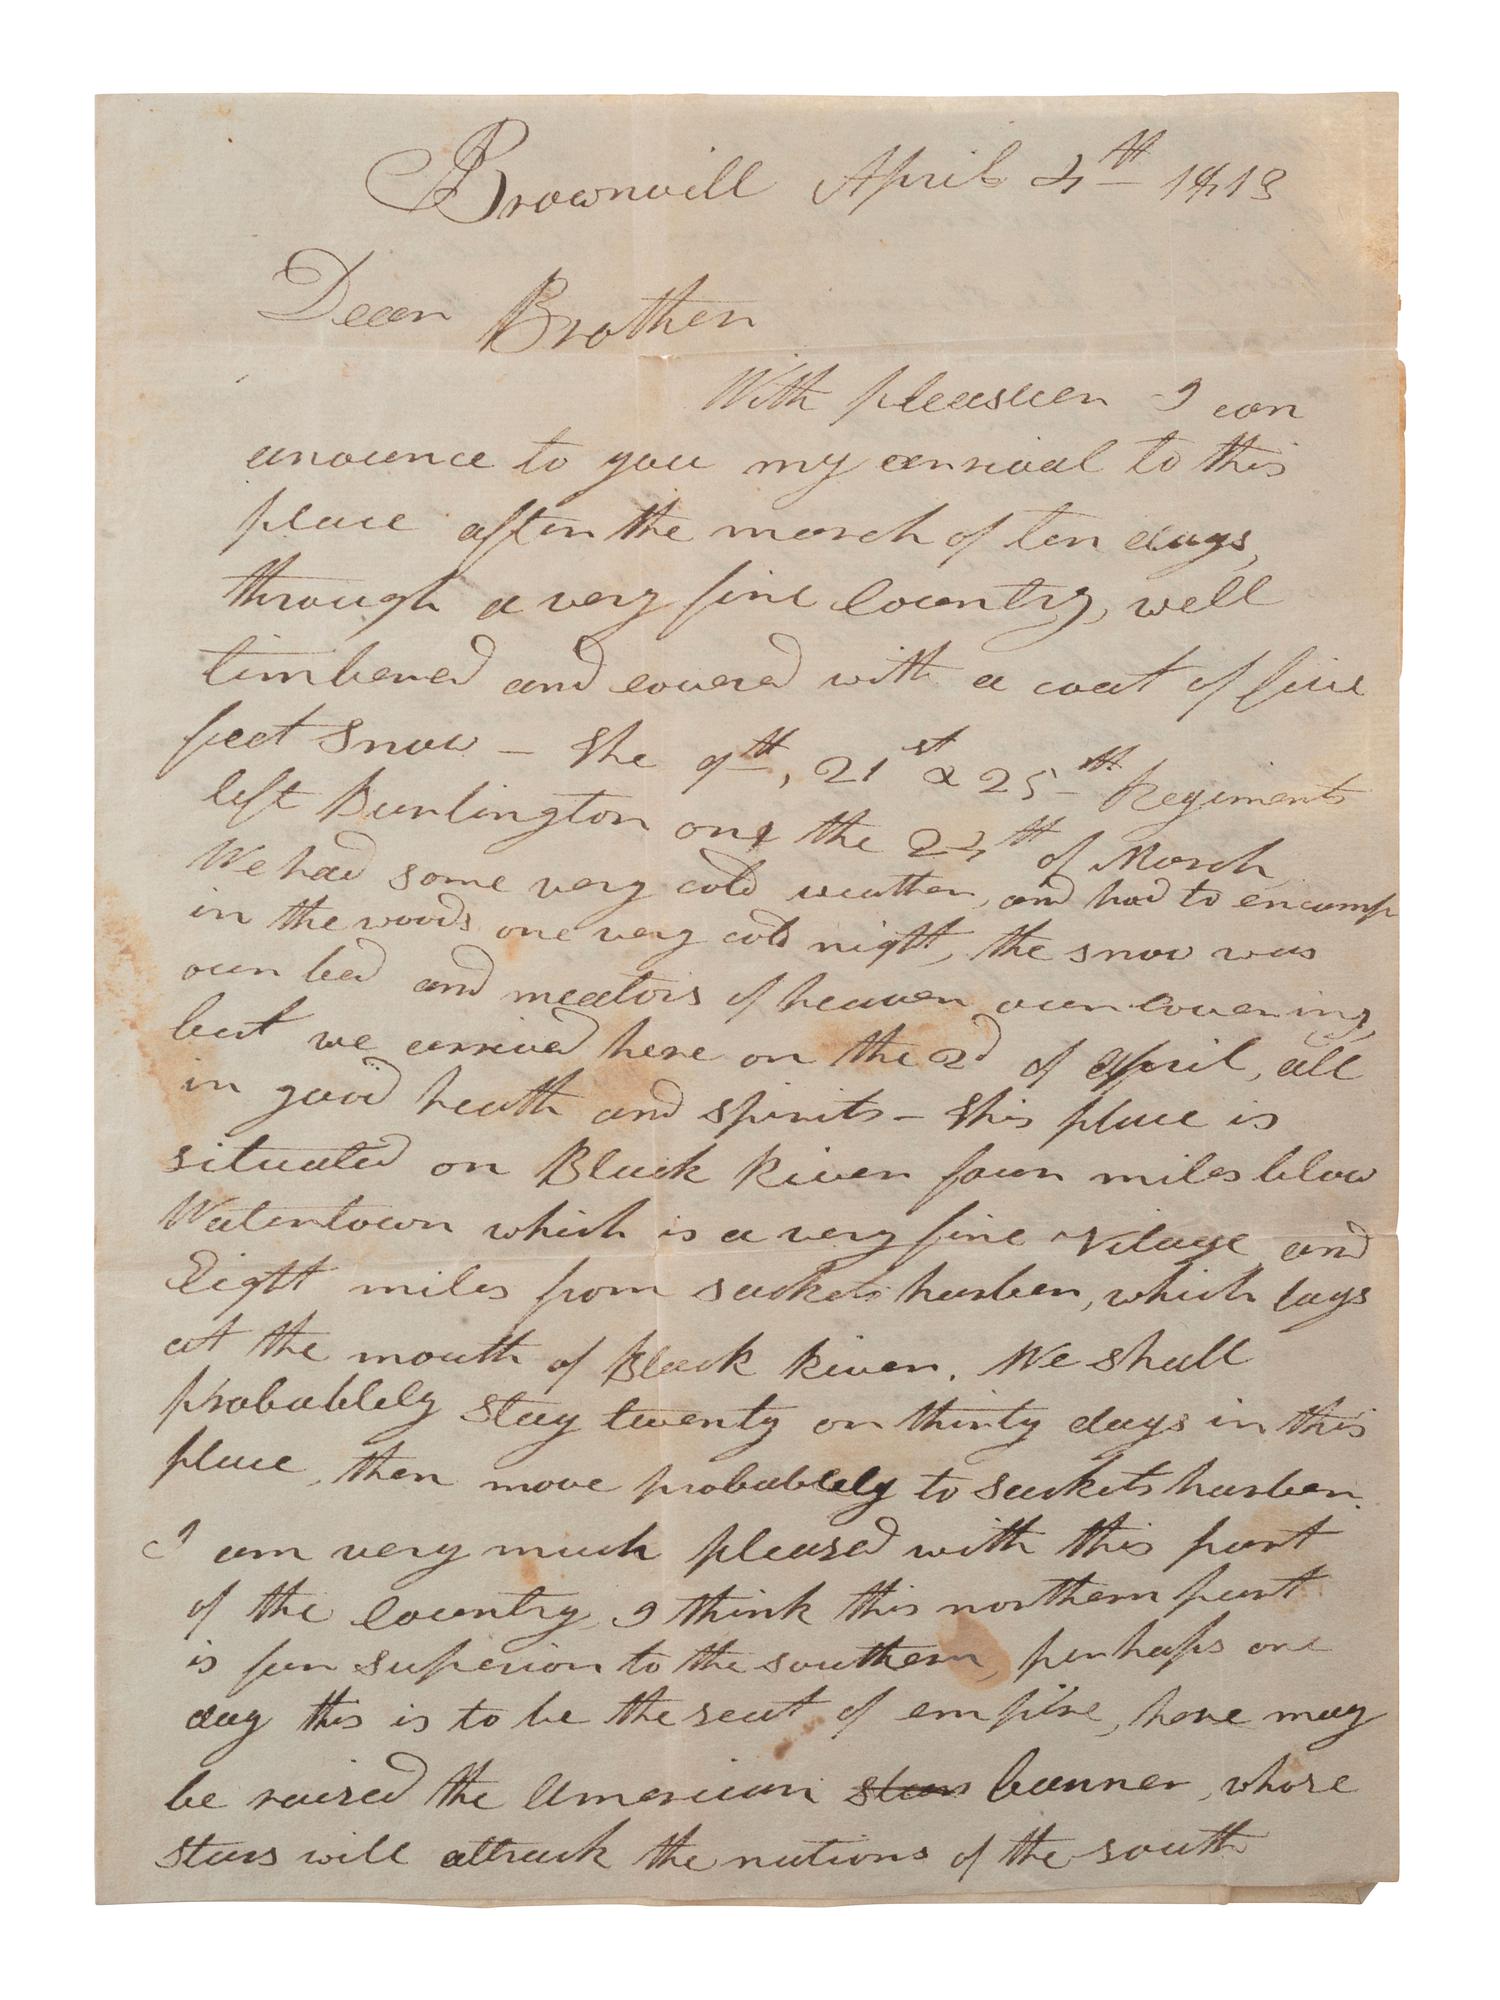 Brownvill April 4th 1813
Dear Brother
With pleasuer I can
anounce to you my arrival to this
place after the march of ten days,
through a very fine Country, well
timbered and covered with a coat of five
feet snow - The 9th, 21st & 25th Regiments
left Burlington one the 24th of March
We had some very cold weather, and had to encamp
in the woods one very cold night, the snow was
our bed and meators of heaven our covering,
but we arrived here on the 2d of April, all
in good heath and spirits - This place is
situated on Black River four miles blow
Watertown which is a very fine Vilage and
Eight miles from sackets harber, which lays
at the mouth of Black River. We shall
probablely stay twenty or thirty days in this
place, then move probablely to Sackets harber.
I am very much pleased with this part
of the Country, I think this northern part
is far superior to the southern, perhaps one
day this is to be the seat of empire, here may
be raised the American stars banner, whose
stars will attrack the nations of the south